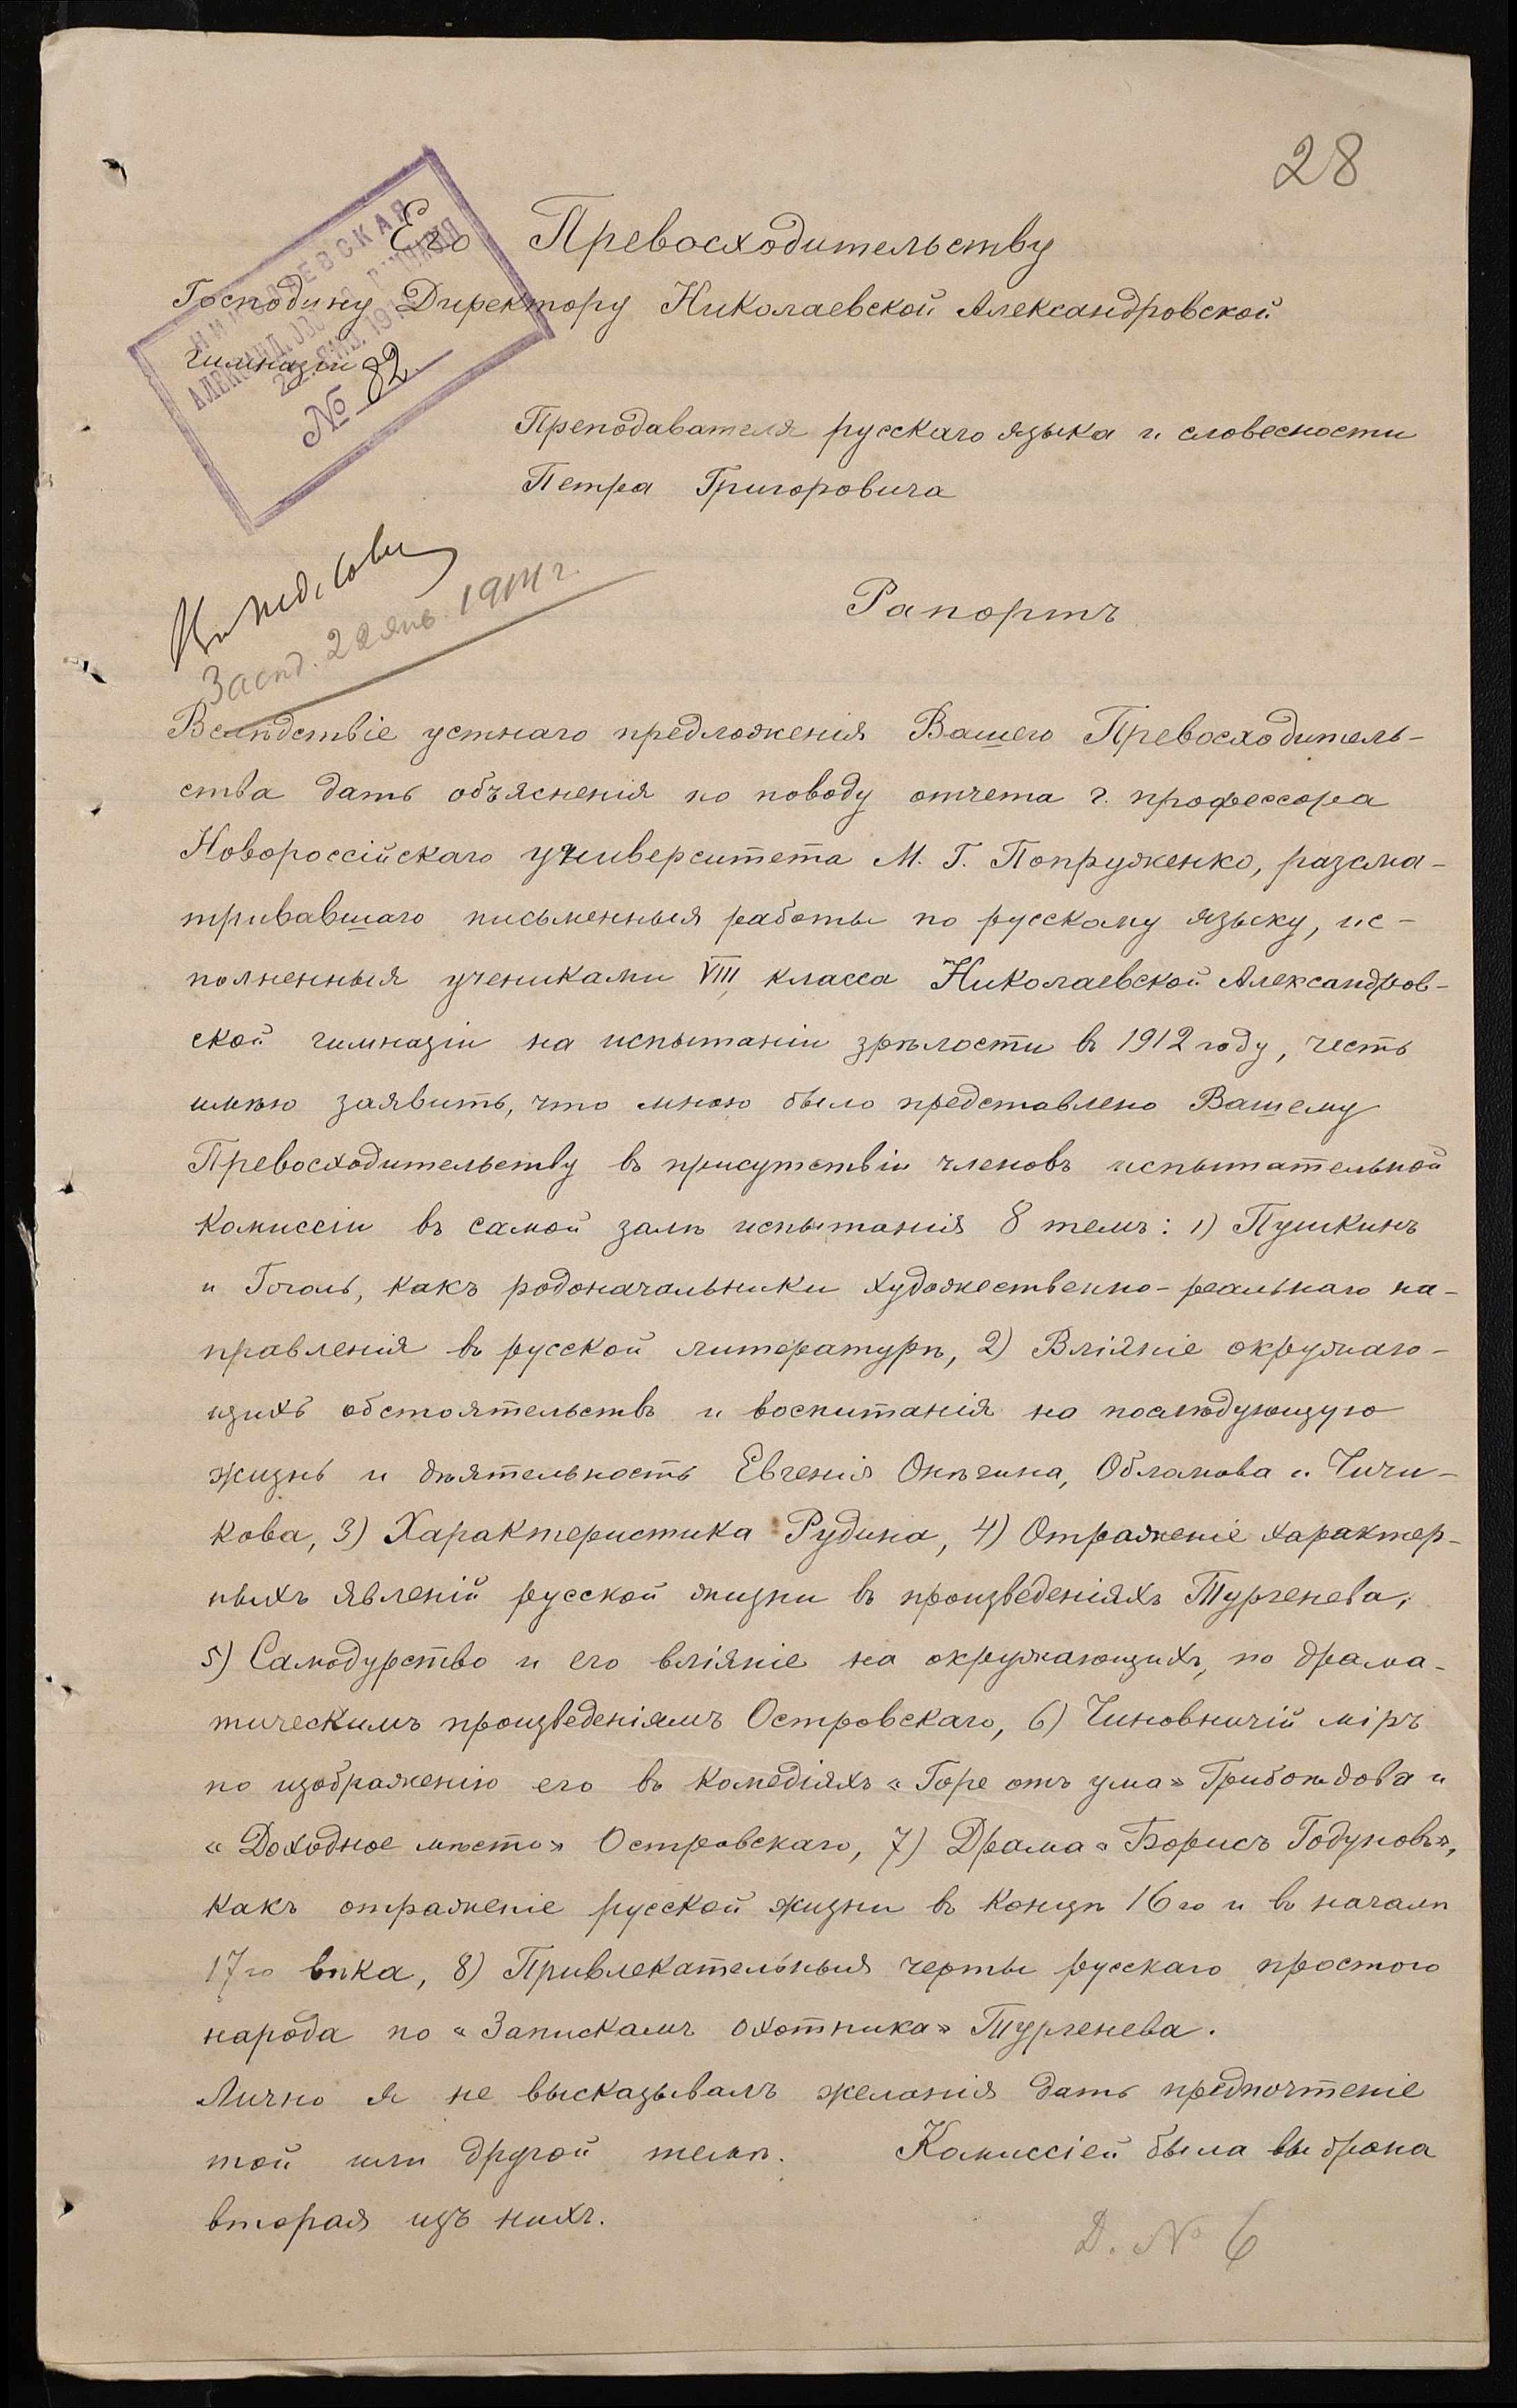 28
Его Превосходительству
Господину Директору Николаевской Александровской
гимназіи
НИКОЛАЕВСКАЯ
№ 82
Преподавателя русскаго языка и словесности
Петра Григоровича
Засѣд. 22 янв. 1914 г.
Рапортъ
Вслѣдствіе устнаго предложенія Вашего Превосходитель-
ства дать объясненія по поводу отчета г. профессора
Новороссійскаго университета М. Г. Попруженко, разсма-
тривавшаго письменныя работы по русскому языку, ис-
полненныя учениками VIII класса Николаевской Александров-
ской гимназіи на испытаніи зрѣлости въ 1912 году, честь
имѣю заявить, что мною было представлено Вашему
Превосходительству въ присутствіи членовъ испытательной
комиссіи въ самой залѣ испытанія 8 темъ: 1) Пушкинъ
и Гоголь, какъ родоначальники художественно-реальнаго на-
правленія въ русской литературѣ, 2) Вліяніе окружаю-
щихъ обстоятельствъ и воспитанія на послѣдующую
жизнь и дѣятельность Евгенія Онѣгина, Обломова и Чичи-
кова, 3) Характеристика Рудина, 4) Отраженіе характер-
ныхъ явленій русской жизни въ произведеніяхъ Тургенева,
5) Самодурство и его вліяніе на окружающихъ, по драма-
тическимъ произведеніямъ Островскаго, 6) Чиновничій міръ
по изображенію его въ комедіяхъ «Горе отъ ума» Грибоѣдова и
«Доходное мѣсто» Островскаго, 7) Драма «Борисъ Годуновъ»,
какъ отраженіе русской жизни въ концѣ 16го и въ началѣ
17го вѣка, 8) Привлекательныя черты русскаго простого
народа по «Запискамъ охотника» Тургенева.
Лично я не высказывалъ желанія дать предпочтеніе
той или другой темѣ. Комиссіей была выбрана
вторая изъ нихъ.
Д. № 6